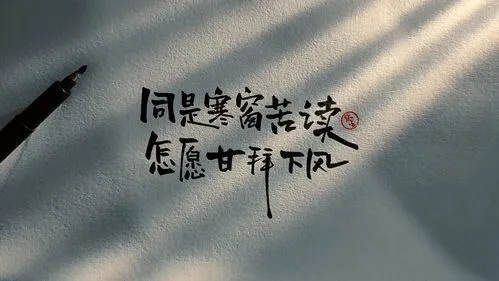 同是寒窗苦读
怎愿甘拜下风